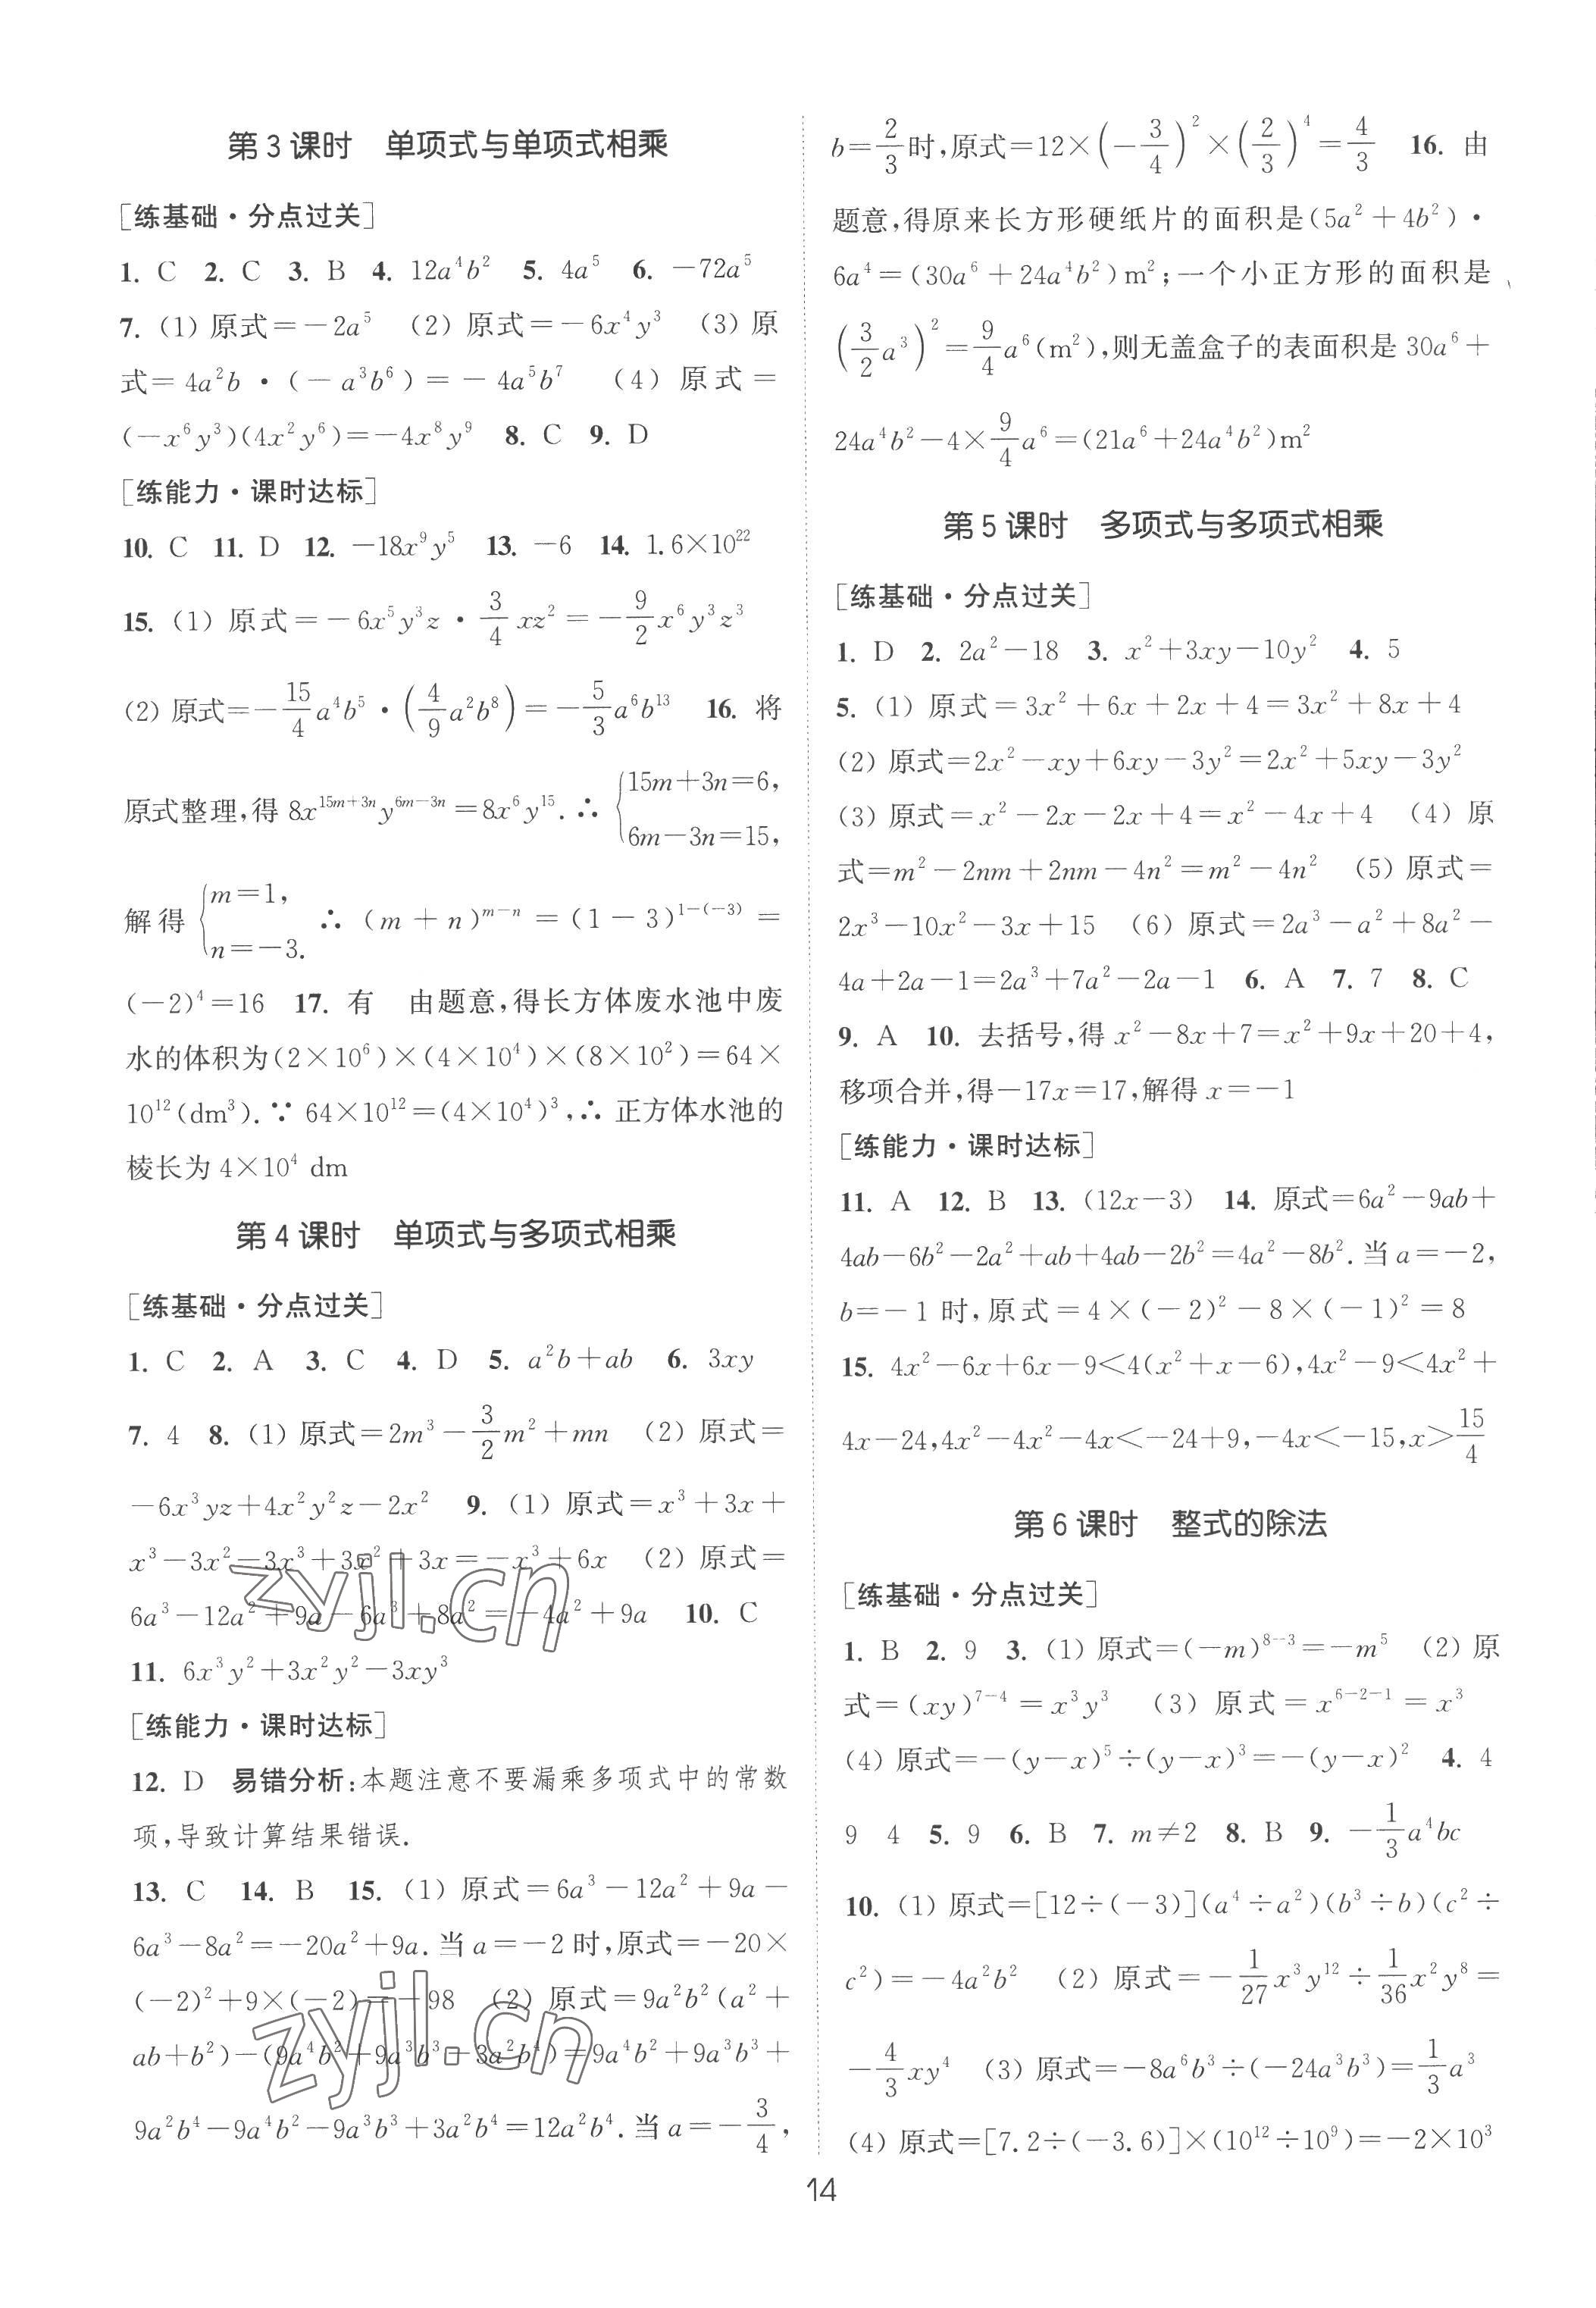 第 3 课时　单项式与单项式相乘
[练基础·分点过关]
1. C 2. C 3. B 4. 12a⁴b² 5. 4a⁵ 6. －72a⁵
7. (1) 原式＝－2a⁵ (2) 原式＝－6x⁴y³ (3) 原
式＝4a²b·(－a³b⁶)＝－4a⁵b⁷ (4) 原式＝
(－x⁶y³)(4x²y⁶)＝－4x⁸y⁹ 8. C 9. D
[练能力·课时达标]
10. C 11. D 12. －18x⁹y⁵ 13. －6 14. 1.6×10²²
15. (1) 原式＝－6x⁵y³z·3/4 xz²＝－9/2 x⁶y³z³
(2) 原式＝－15/4 a⁴b⁵·(4/9 a²b⁸)＝－5/3 a⁶b¹³ 16. 将
原式整理,得 8x^(15m+3n)y^(6m－3n)＝8x⁶y¹⁵.∴ {15m＋3n＝6, 6m－3n＝15,
解得 {m＝1, n＝－3. ∴ (m＋n)^(m－n)＝(1－3)^(1－(－3))＝
(－2)⁴＝16 17. 有　由题意,得长方体废水池中废
水的体积为(2×10⁶)×(4×10⁴)×(8×10²)＝64×
10¹²(dm³).∵ 64×10¹²＝(4×10⁴)³,∴ 正方体水池的
棱长为 4×10⁴ dm
第 4 课时　单项式与多项式相乘
[练基础·分点过关]
1. C 2. A 3. C 4. D 5. a²b＋ab 6. 3xy
7. 4 8. (1) 原式＝2m³－3/2 m²＋mn (2) 原式＝
－6x³yz＋4x²y²z－2x² 9. (1) 原式＝x³＋3x＋
x³－3x²＝3x³＋3x²＋3x＝－x³＋6x (2) 原式＝
6a³－12a²＋9a－6a³＋8a²＝－4a²＋9a 10. C
11. 6x³y²＋3x²y²－3xy³
[练能力·课时达标]
12. D 易错分析:本题注意不要漏乘多项式中的常数
项,导致计算结果错误.
13. C 14. B 15. (1) 原式＝6a³－12a²＋9a－
6a³－8a²＝－20a²＋9a.当 a＝－2 时,原式＝－20×
(－2)²＋9×(－2)＝－98 (2) 原式＝9a²b²(a²＋
ab＋b²)－(9a⁴b²＋9a³b³－3a²b⁴)＝9a⁴b²＋9a³b³＋
9a²b⁴－9a⁴b²－9a³b³＋3a²b⁴＝12a²b⁴.当 a＝－3/4,
b＝2/3 时,原式＝12×(－3/4)²×(2/3)⁴＝4/3 16. 由
题意,得原来长方形硬纸片的面积是(5a²＋4b²)·
6a⁴＝(30a⁶＋24a⁴b²)m²;一个小正方形的面积是
(3/2 a³)²＝9/4 a⁶(m²),则无盖盒子的表面积是 30a⁶＋
24a⁴b²－4×9/4 a⁶＝(21a⁶＋24a⁴b²)m²
第 5 课时　多项式与多项式相乘
[练基础·分点过关]
1. D 2. 2a²－18 3. x²＋3xy－10y² 4. 5
5. (1) 原式＝3x²＋6x＋2x＋4＝3x²＋8x＋4
(2) 原式＝2x²－xy＋6xy－3y²＝2x²＋5xy－3y²
(3) 原式＝x²－2x－2x＋4＝x²－4x＋4 (4) 原
式＝m²－2nm＋2nm－4n²＝m²－4n² (5) 原式＝
2x³－10x²－3x＋15 (6) 原式＝2a³－a²＋8a²－
4a＋2a－1＝2a³＋7a²－2a－1 6. A 7. 7 8. C
9. A 10. 去括号,得 x²－8x＋7＝x²＋9x＋20＋4,
移项合并,得－17x＝17,解得 x＝－1
[练能力·课时达标]
11. A 12. B 13. (12x－3) 14. 原式＝6a²－9ab＋
4ab－6b²－2a²＋ab＋4ab－2b²＝4a²－8b².当 a＝－2,
b＝－1 时,原式＝4×(－2)²－8×(－1)²＝8
15. 4x²－6x＋6x－9＜4(x²＋x－6),4x²－9＜4x²＋
4x－24,4x²－4x²－4x＜－24＋9,－4x＜－15,x＞15/4
第 6 课时　整式的除法
[练基础·分点过关]
1. B 2. 9 3. (1) 原式＝(－m)⁸⁻³＝－m⁵ (2) 原
式＝(xy)⁷⁻⁴＝x³y³ (3) 原式＝x⁶⁻²⁻¹＝x³
(4) 原式＝－(y－x)⁵÷(y－x)³＝－(y－x)² 4. 4
9 4 5. 9 6. B 7. m≠2 8. B 9. －1/3 a⁴bc
10. (1) 原式＝[12÷(－3)](a⁴÷a²)(b³÷b)(c²÷
c²)＝－4a²b² (2) 原式＝－1/27 x³y¹²÷1/36 x²y⁸＝
－4/3 xy⁴ (3) 原式＝－8a⁶b³÷(－24a³b³)＝1/3 a³
(4) 原式＝[7.2÷(－3.6)]×(10¹²÷10⁹)＝－2×10³
14
zyjl.cn
zyjl.cn